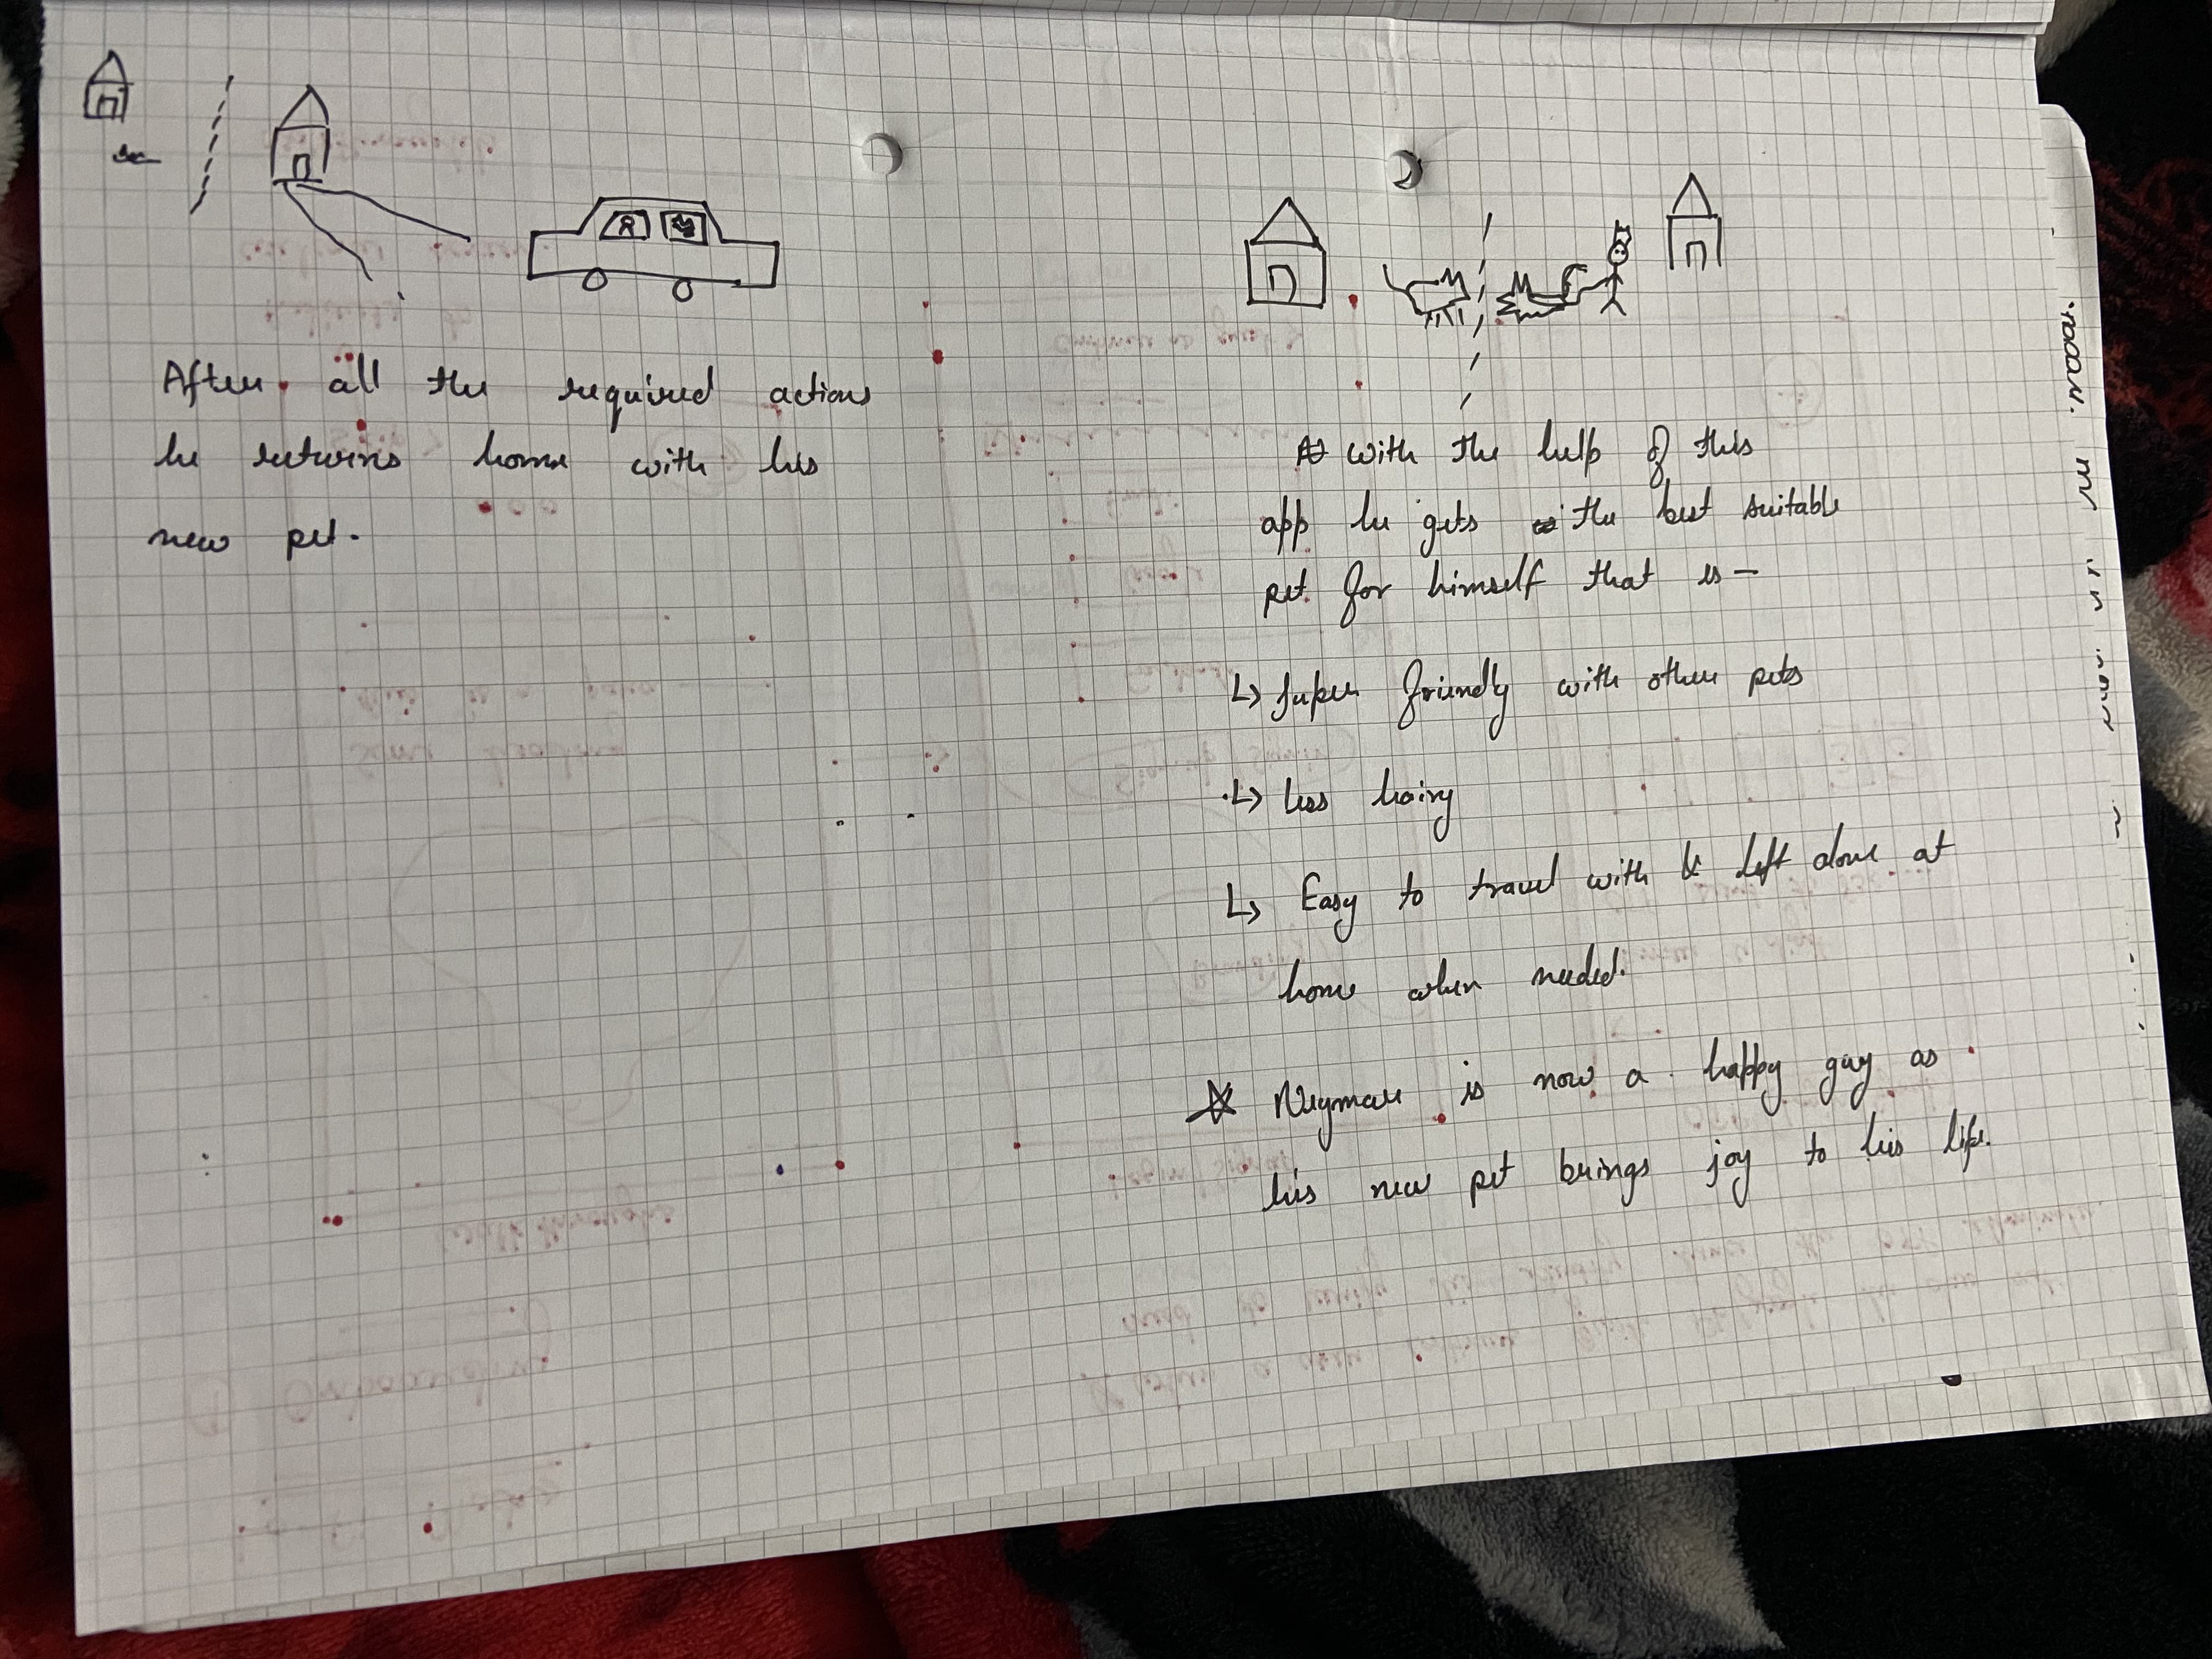 After all the required actions
he returns home with his
new pet.
with the help of this
app he gets the best suitable
pet for himself that is —
↳ super friendly with other pets
↳ less hairy
↳ Easy to travel with & left alone at
home when needed.
☆ Neymar is now a happy guy as
his new pet brings joy to his life.